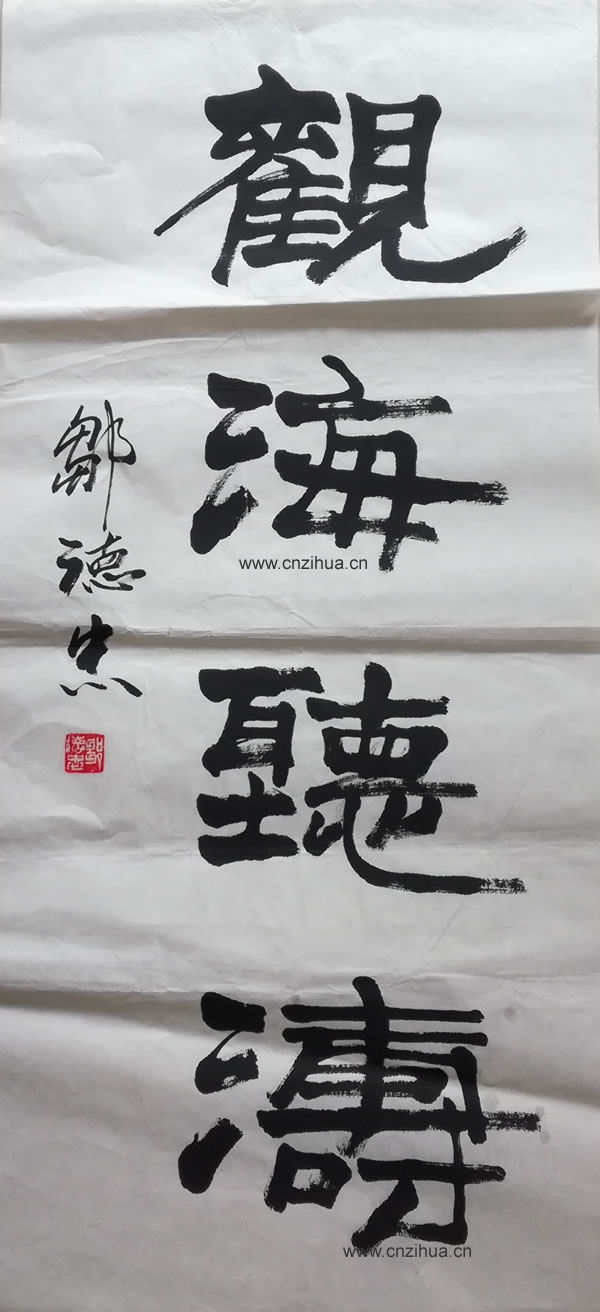 觀海聽濤
鄒德忠
鄒德忠
www.cnzihua.cn
www.cnzihua.cn